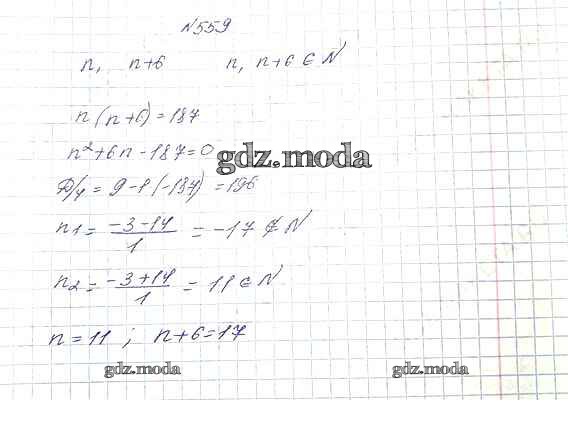 №559
n, n+6 n, n+6 ∈ N
n(n+6)=187
n²+6n-187=0
gdz.moda
D/4 = 9-1(-187) =196
n1 = (-3-14)/1 = -17 ∉ N
n2 = (-3+14)/1 = 11 ∈ N
n=11 ; n+6=17
gdz.moda gdz.moda